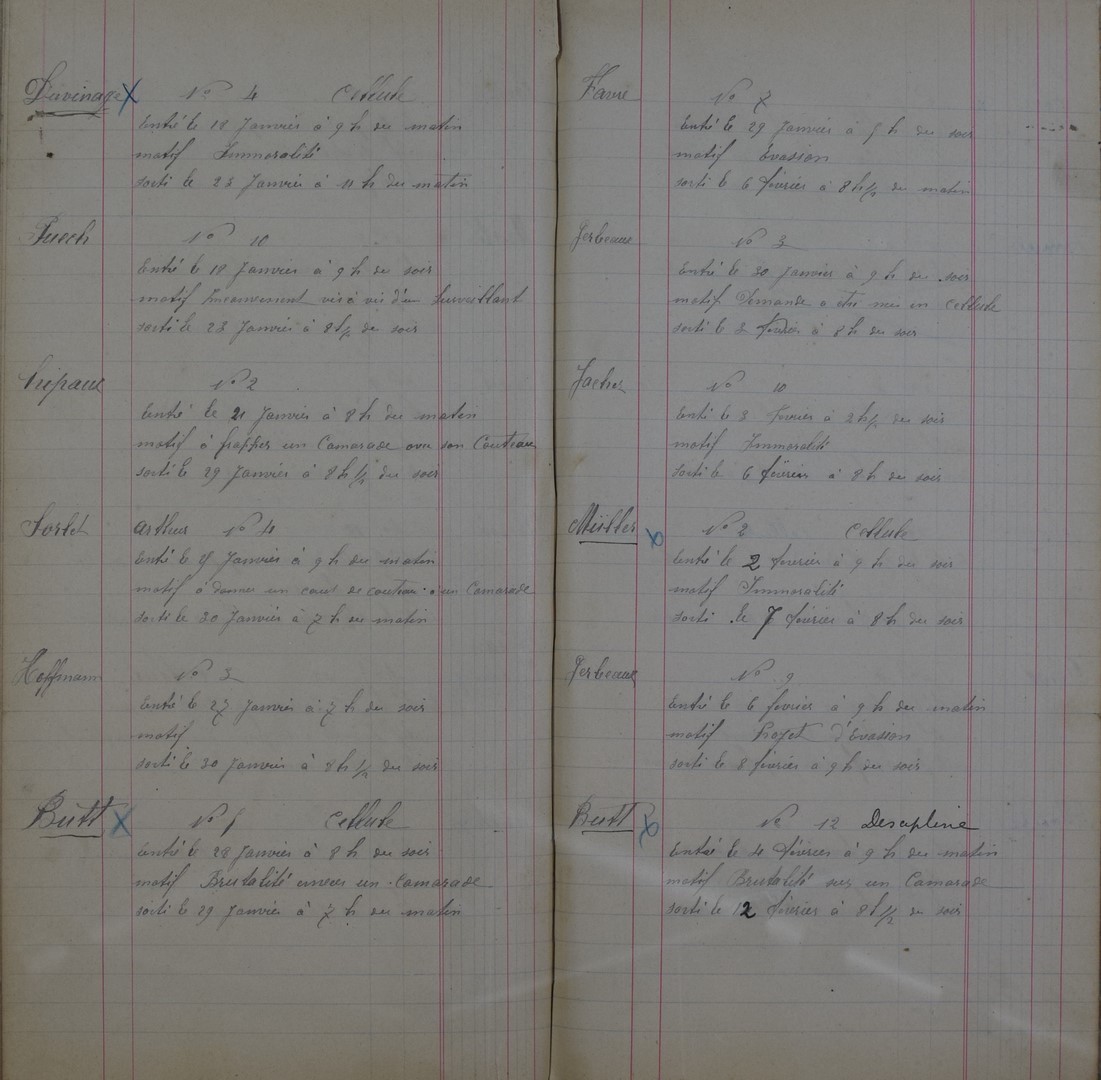 Davinage X N° 4 Cellule
Entré le 18 Janvier à 9 h du matin
motif Immoralité
sorti le 23 Janvier à 11 h du matin
Puech N° 10
Entré le 18 Janvier à 9 h du soir
motif Inconvenant vis à vis d'un Surveillant
sorti le 23 Janvier à 8 h 1/2 du soir
N° 2
Entré le 21 Janvier à 8 h du matin
motif à frapper un Camarade avec son Couteau
sorti le 29 Janvier à 8 h 1/2 du soir
Sorlet Arthur N° 4
Entré le Janvier à 9 h du matin
motif à donner un cout de couteau à un Camarade
sorti le 30 Janvier à 7 h du matin
Hoffmann N° 3
Entré le 27 Janvier à 7 h du soir
motif
sorti le 30 Janvier à 8 h 1/2 du soir
Butt X N° 1 Cellule
Entré le 28 Janvier à 8 h du soir
motif Brutalité envers un Camarade
sorti le 29 Janvier à 7 h du matin
Favre N° 7
Entré le 29 Janvier à h du soir
motif Evasion
sorti le 6 février à 8 h 1/2 du matin
Gerbeaux N° 3
Entré le 30 Janvier à 9 h du soir
motif Demande a etre mis en Cellule
sorti le 2 février à 8 h du soir
N° 10
Entré le 3 février à 2 h 1/2 du soir
motif Immoralité
sorti le 6 février à 8 h du soir
Müller N° 2 Cellule
Entré le 2 février à 9 h du soir
motif Immoralité
sorti le 7 février à 8 h du soir
Gerbeaux N° 9
Entré le 6 février à 9 h du matin
motif Projet d'Evasion
sorti le 8 février à 9 h du soir
Butt N° 12 Descipline
Entré le 4 février à 9 h du matin
motif Brutalité sur un Camarade
sorti le 12 février à 8 h 1/2 du soir